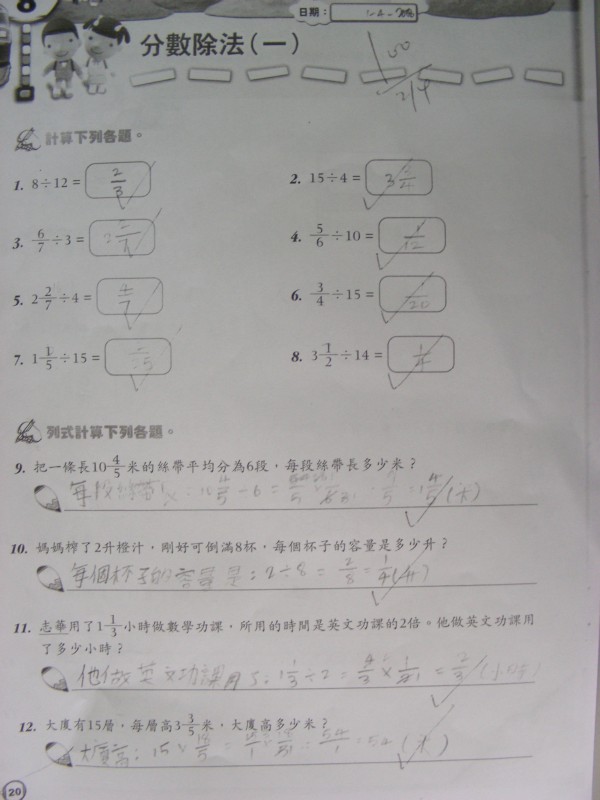 8
日期：
分數除法(一)
100
計算下列各題。
1. 8÷12 = 2/3
2. 15÷4 = 3 3/4
3. 6/7÷3 =
4. 5/6÷10 = 1/12
5. 2 2/7÷4 = 4/7
6. 3/4÷15 = 1/20
7. 1 1/5÷15 =
8. 3 1/2÷14 = 1/4
列式計算下列各題。
9. 把一條長10 4/5米的絲帶平均分為6段，每段絲帶長多少米？
每段絲帶長: 10 4/5 ÷ 6 = = 1 4/5 (米)
10. 媽媽榨了2升橙汁，剛好可倒滿8杯，每個杯子的容量是多少升？
每個杯子的容量是: 2÷8 = 2/8 = 1/4 (升)
11. 志華用了1 1/3小時做數學功課，所用的時間是英文功課的2倍。他做英文功課用
了多少小時？
他做英文功課用了: 1 1/3 ÷ 2 = 4/3 × 1/2 = 2/3 (小時)
12. 大廈有15層，每層高3 3/5米，大廈高多少米？
大廈高: 15 × 18/5 = = 54/1 = 54 (米)
20